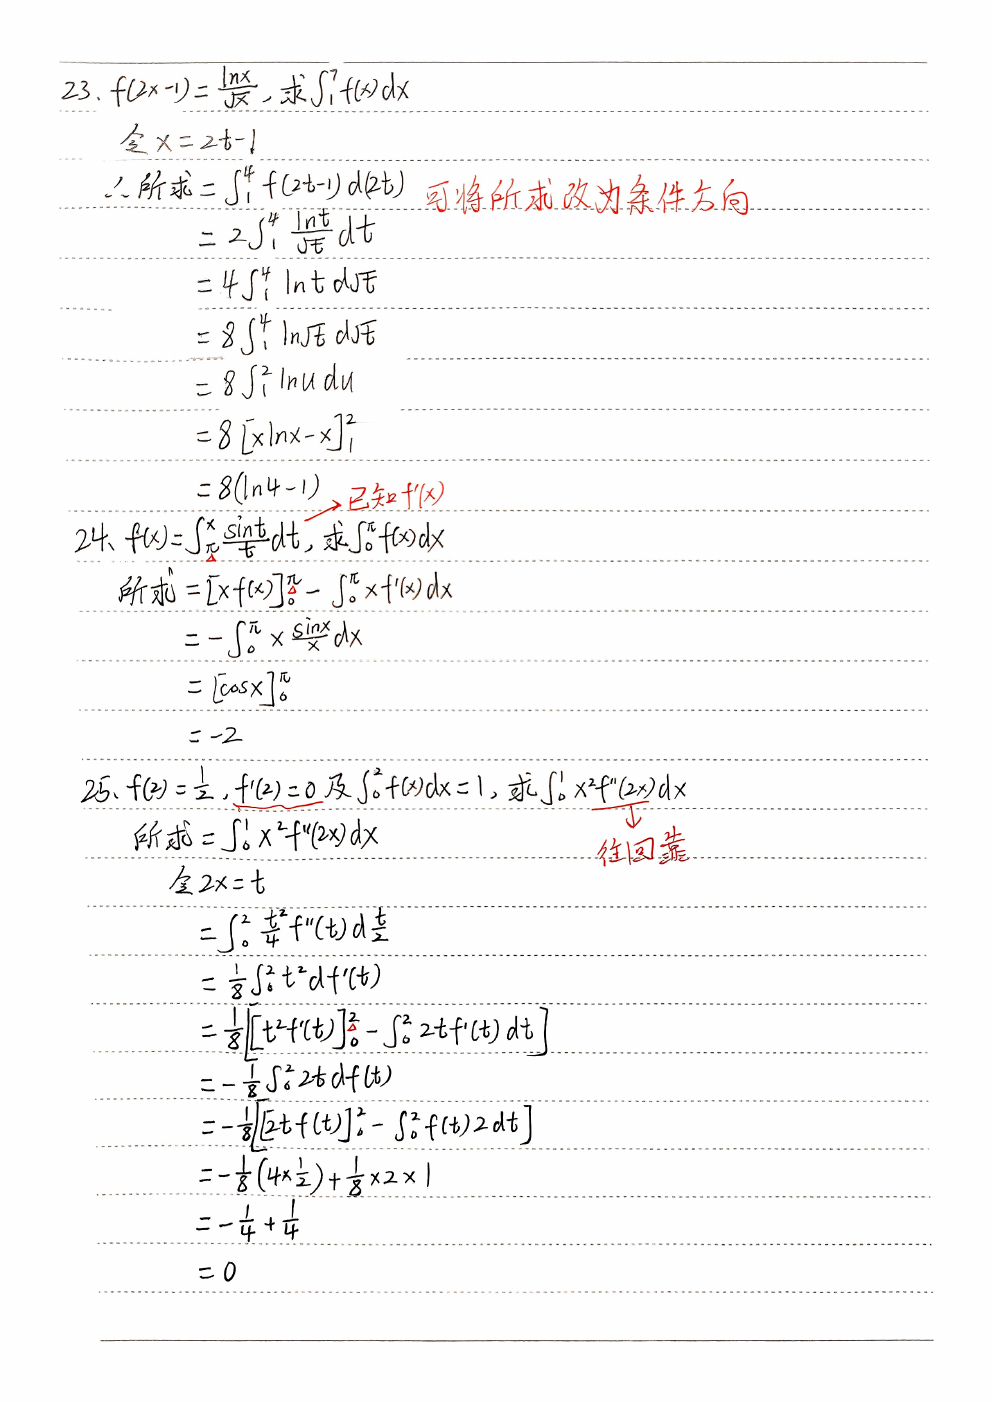 23、f(2x-1)=lnx/√x，求∫₁⁷f(x)dx
令x=2t-1
∴所求=∫₁⁴f(2t-1)d(2t) 可将所求改为条件方向
=2∫₁⁴ lnt/√t dt
=4∫₁⁴ lnt d√t
=8∫₁⁴ ln√t d√t
=8∫₁² lnu du
=8[xlnx-x]₁²
=8(ln4-1) →已知f'(x)
24、f(x)=∫_π^x sint/t dt，求∫₀^π f(x)dx
所求=[xf(x)]₀^π-∫₀^π xf'(x)dx
=-∫₀^π x sinx/x dx
=[cosx]₀^π
=-2
25、f(2)=1/2，f'(2)=0及∫₀²f(x)dx=1，求∫₀¹x²f''(2x)dx
所求=∫₀¹x²f''(2x)dx 往回靠
令2x=t
=∫₀² t²/4 f''(t)d t/2
=1/8∫₀²t²df'(t)
=1/8[[t²f'(t)]₀²-∫₀²2tf'(t)dt]
=-1/8∫₀²2tdf(t)
=-1/8[[2tf(t)]₀²-∫₀²f(t)2dt]
=-1/8(4×1/2)+1/8×2×1
=-1/4+1/4
=0